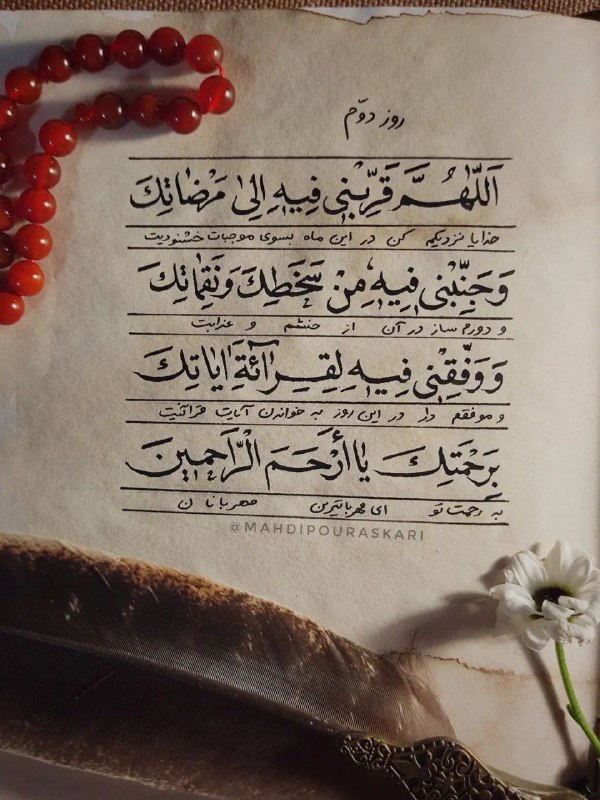 روز دوّم
اَللّهُمَّ قَرِّبْنی فیهِ اِلیٰ مَرْضاتِکَ
خدایا نزدیکم کن در این ماه بسوی موجبات خشنودیت
وَجَنِّبْنی فیهِ مِنْ سَخَطِکَ وَنَقِماتِکَ
و دورم ساز در آن از خشم و عذابت
وَ وَفِّقْنی فیهِ لِقِرائَةِ ایاتِکَ
و موفقم دار در این روز به خواندن آیات قرآنیت
بِرَحْمَتِکَ یا أَرْحَمَ الْرّاحِمینَ
به رحمت تو ای مهربانترین مهربانان
@MAHDIPOURASKARI